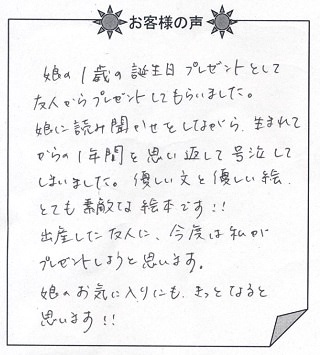 お客様の声
娘の1歳の誕生日プレゼントとして
友人からプレゼントしてもらいました。
娘に読み聞かせをしながら、生まれて
からの1年間を思い返して号泣して
しまいました。優しい文と優しい絵、
とても素敵な絵本です!!
出産した友人に、今度は私が
プレゼントしようと思います。
娘のお気に入りにも、きっとなると
思います!!